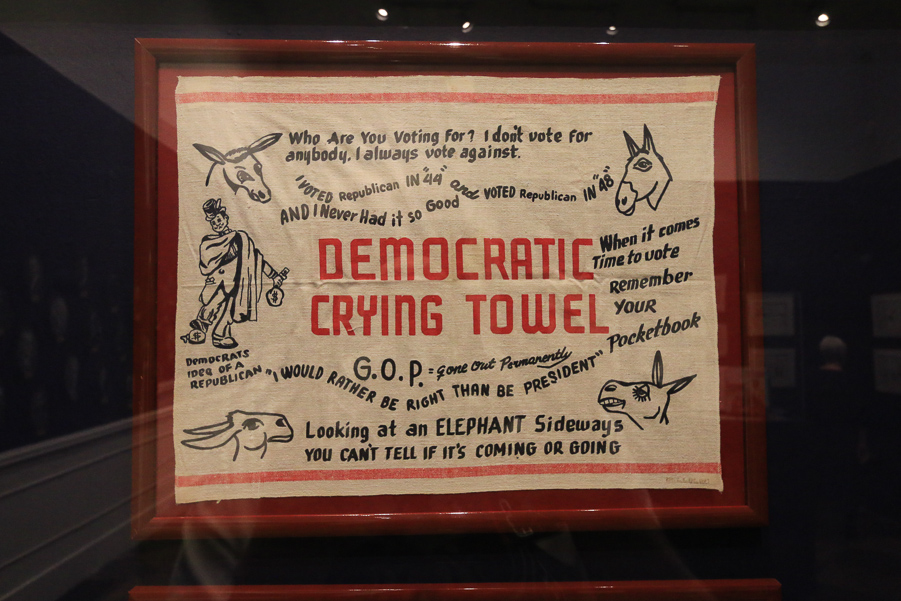 Who Are You Voting For? I don't vote for
anybody. I always vote against.
I VOTED Republican IN "44" and VOTED Republican IN "48"
AND I Never Had it so Good
DEMOCRATIC
CRYING TOWEL
When it comes
Time to vote
Remember
YOUR
Pocketbook
DEMOCRATS
IDEA OF A
REPUBLICAN
G.O.P. = Gone Out Permanently
"I WOULD RATHER BE RIGHT THAN BE PRESIDENT"
Looking at an ELEPHANT Sideways
YOU CAN'T TELL IF IT'S COMING OR GOING
$
$